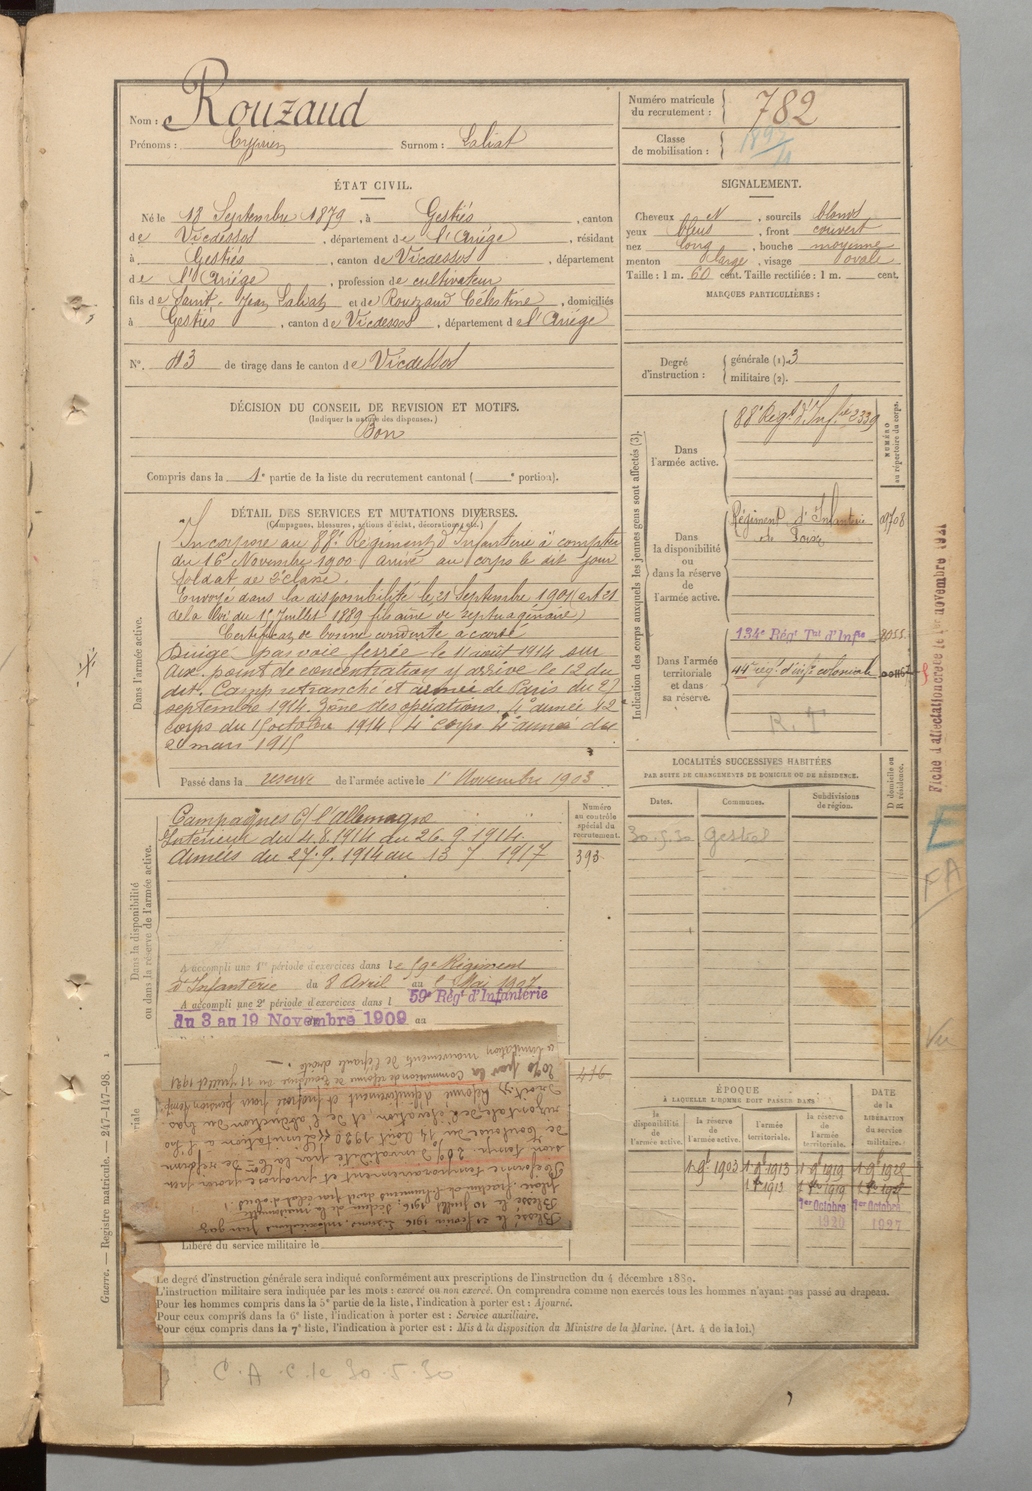 Nom : Rouzaud
Prénoms : Cyprien Surnom : Laliat
Numéro matricule du recrutement : 782
Classe de mobilisation :
ÉTAT CIVIL.
Né le 13 Septembre 1879, à Gestiès, canton
de Vicdessos, département de l'Ariège, résidant
à Gestiès, canton de Vicdessos, département
de l'Ariège, profession de cultivateur
fils de Jean et de Rouzaud Célestine, domiciliés
à Gestiès, canton de Vicdessos, département de l'Ariége
N°. 43 de tirage dans le canton de Vicdessos
SIGNALEMENT.
Cheveux N, sourcils blonds
yeux bleus, front couvert
nez long, bouche moyenne
menton large, visage ovale
Taille : 1 m. 60 cent. Taille rectifiée : 1 m. cent.
MARQUES PARTICULIÈRES :
Degré d'instruction : générale (1). 3
militaire (2).
DÉCISION DU CONSEIL DE REVISION ET MOTIFS.
(Indiquer la nature des dispenses.)
Bon
Compris dans la 1e partie de la liste du recrutement cantonal ( e portion).
DÉTAIL DES SERVICES ET MUTATIONS DIVERSES.
(Campagnes, blessures, actions d'éclat, décorations, etc.)
Dans l'armée active.
Incorporé au 88e Régiment d'Infanterie à compter
du 16 Novembre 1900 arrivé au corps le dit jour
soldat de 2e classe.
Envoyé dans la disponibilité le 21 Septembre 1901 art 21
de la loi du 15 Juillet 1889 fils ainé de septuagénaire)
Certificat de bonne conduite accordé
Dirigé par voie ferrée le 11 août 1914 sur
aux. point de concentration y arrive le 12 du
dit. Camp retranché et armée de Paris du 27
septembre 1914. Zone des opérations. 4e armée 12
corps du 15 octobre 1914. 4e corps 2e armée du
20 mars 1915
Passé dans la réserve de l'armée active le 1er Novembre 1903
Dans la disponibilité ou dans la réserve de l'armée active.
Campagnes C/ l'allemagne
Intérieur du 4.8.1914 au 26.9.1914.
Armées du 27.9.1914 au 13 7 1917
Numéro au contrôle spécial du recrutement.
393
416
A accompli une 1re période d'exercices dans le 59e Régiment
d'Infanterie du 8 Avril au Mai 1907
A accompli une 2e période d'exercices dans l 59e Régt d'Infanterie
du 3 au 19 Novembre 1909 au
Blessé le 10 juillet 1916
Réformé temporairement et proposé pour pension
de Toulouse du 14 Août 1920
Commission de réforme de Toulouse du 11 juillet 1921
mouvements de l'épaule droite.
Libéré du service militaire le
Indication des corps auxquels les jeunes gens sont affectés (3).
NUMÉRO au répertoire du corps.
Dans l'armée active.
88e Régt d'Infie 2339
Dans la disponibilité ou dans la réserve de l'armée active.
Régiment d'Infanterie de Foix
Dans l'armée territoriale et dans sa réserve.
134e Régt Tal d'Infie 8055
44e régt d'infie coloniale
R.T
Fiche d'affectation créée le 1er novembre 1921
LOCALITÉS SUCCESSIVES HABITÉES
PAR SUITE DE CHANGEMENTS DE DOMICILE OU DE RÉSIDENCE.
Dates. Communes. Subdivisions de région. D domicile ou R résidence.
30.5.30
E
FA
Vu
ÉPOQUE
À LAQUELLE L'HOMME DOIT PASSER DANS
la disponibilité de l'armée active. la réserve de l'armée active. l'armée territoriale. la réserve de l'armée territoriale.
DATE de la LIBÉRATION du service militaire.
1 9e 1903 1 9e 1913 1 9e 1919
1er Octobre 1920 1er Octobre 1927
Le degré d'instruction générale sera indiqué conformément aux prescriptions de l'instruction du 4 décembre 1889.
L'instruction militaire sera indiquée par les mots : exercé ou non exercé. On comprendra comme non exercés tous les hommes n'ayant pas passé au drapeau.
Pour les hommes compris dans la 5e partie de la liste, l'indication à porter est : Ajourné.
Pour ceux compris dans la 6e liste, l'indication à porter est : Service auxiliaire.
Pour ceux compris dans la 7e liste, l'indication à porter est : Mis à la disposition du Ministre de la Marine. (Art. 4 de la loi.)
Guerre. — Registre matricule. — 247-147-98. 1
C.A.C. le 30.5.30